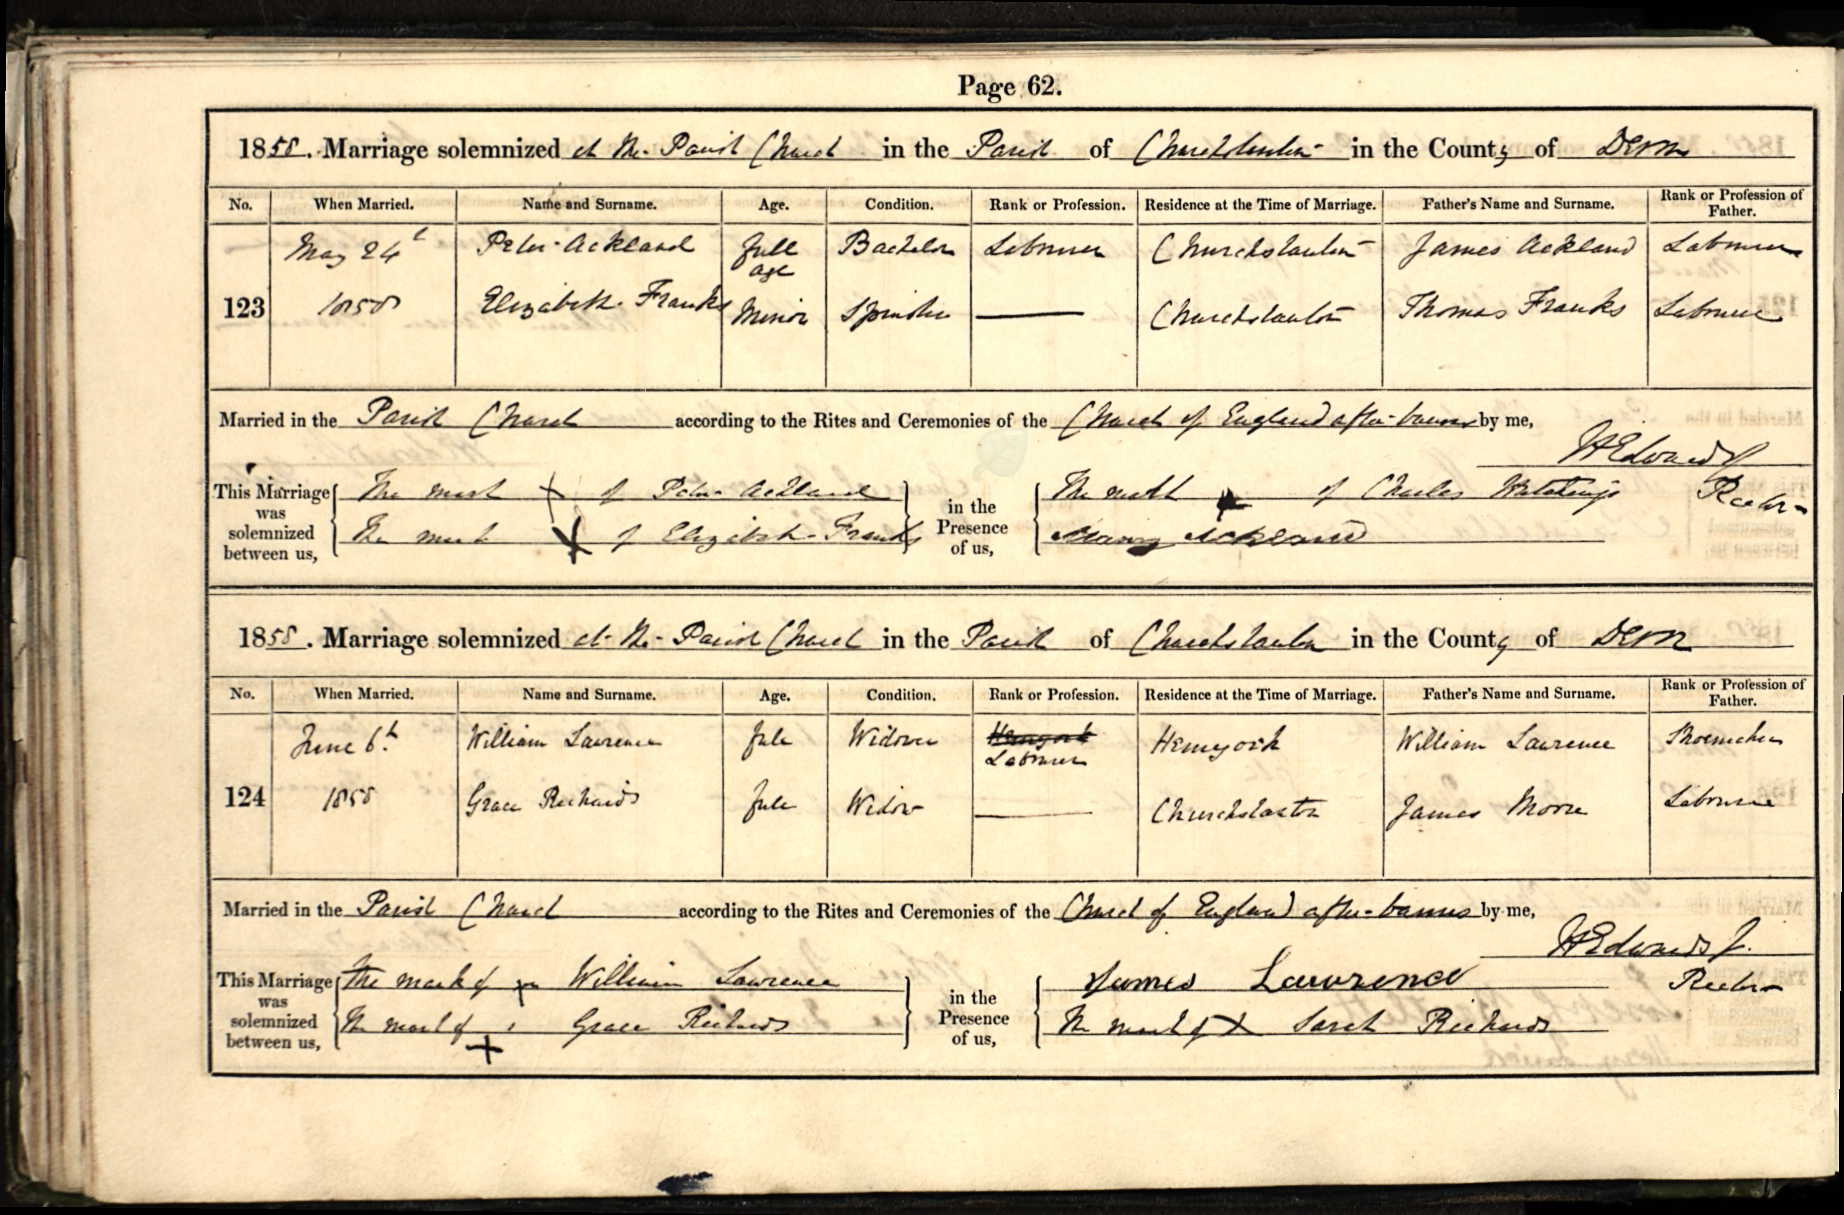 Page 62.
1858. Marriage solemnized at the Parish Church in the Parish of Churchstanton in the County of Devon
No. When Married. Name and Surname. Age. Condition. Rank or Profession. Residence at the Time of Marriage. Father's Name and Surname. Rank or Profession of Father.
May 24th Peter Ackland full age Bachelor Labourer Churchstanton James Ackland Labourer
123 1858 Elizabeth Franks Minor Spinster Churchstanton Thomas Franks Labourer
Married in the Parish Church according to the Rites and Ceremonies of the Church of England after banns by me,
H Edwards
Rector
This Marriage was solemnized between us, The mark X of Peter Ackland in the Presence of us, The mark X of Charles Hutchings
The mark X of Elizabeth Franks Ackland
1858. Marriage solemnized at the Parish Church in the Parish of Churchstanton in the County of Devon
No. When Married. Name and Surname. Age. Condition. Rank or Profession. Residence at the Time of Marriage. Father's Name and Surname. Rank or Profession of Father.
June 6th William Lawrence full Widower Hemyock Labourer Hemyock William Lawrence Shoemaker
124 1858 Grace Richards full Widow Churchstanton James Moore Labourer
Married in the Parish Church according to the Rites and Ceremonies of the Church of England after banns by me,
H Edwards J.
Rector
This Marriage was solemnized between us, The mark of X William Lawrence in the Presence of us, James Lawrence
The mark of X Grace Richards The mark of X Sarah Richards